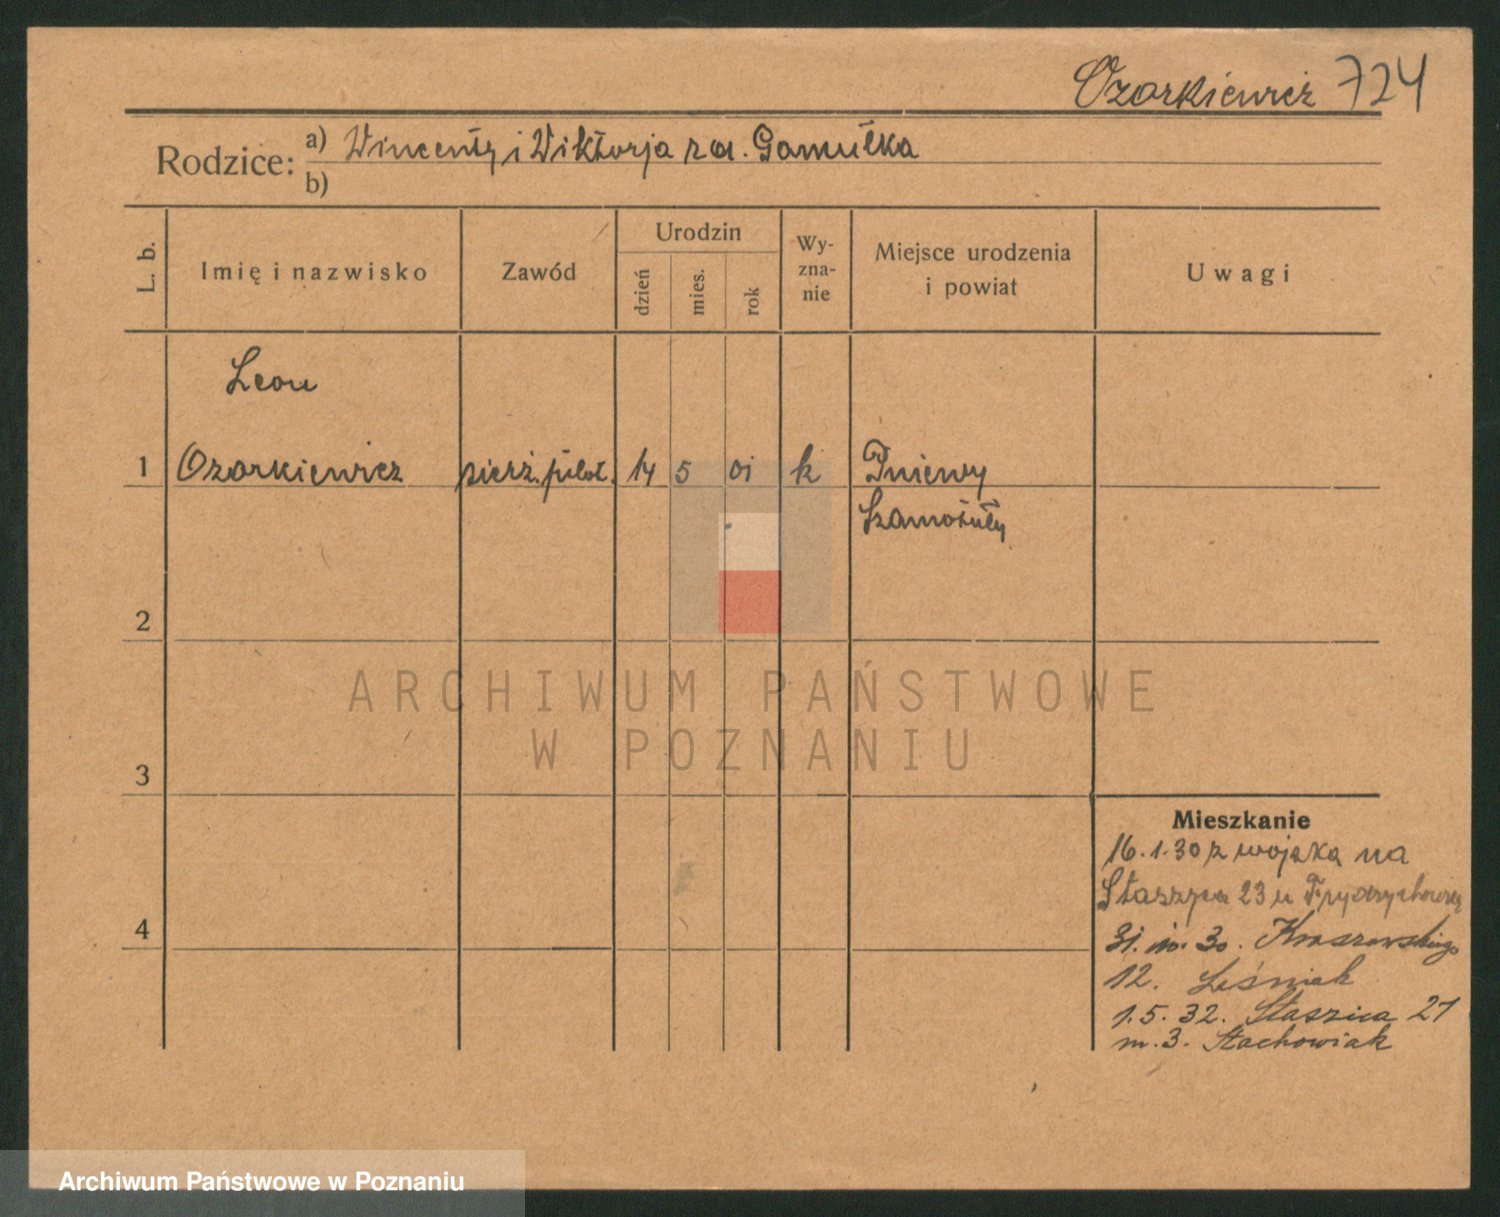 Ozarkiewicz 724
Rodzice: a) Wincenty i Wiktorja z d. Gamułka
b)
L. b.
Imię i nazwisko
Zawód
Urodzin
dzień
mies.
rok
Wy-
zna-
nie
Miejsce urodzenia
i powiat
Uwagi
Leon
1 Ozarkiewicz sierż. pilot. 14 5 01 k Pniewy
Szamotuły
2
3
4
Mieszkanie
16.1.30 z wojska na
Staszyca 23 u
31. 10. 30. Kraszewskiego
12. Leśniak
1.5.32. Staszica 21
m. 3. Stachowiak
ARCHIWUM PAŃSTWOWE
W POZNANIU
Archiwum Państwowe w Poznaniu